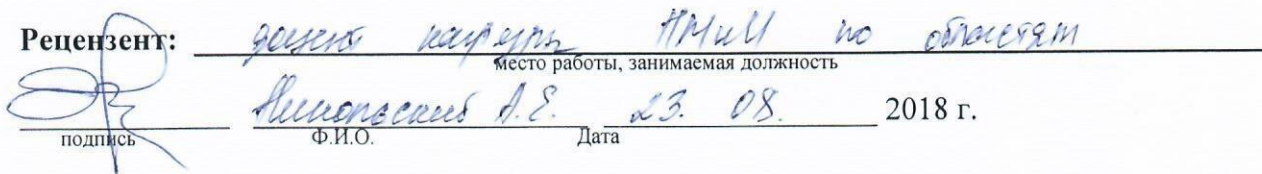 Рецензент: доцент кафедры НМиМ по областям
место работы, занимаемая должность
А.Е. 23. 08. 2018 г.
подпись Ф.И.О. Дата